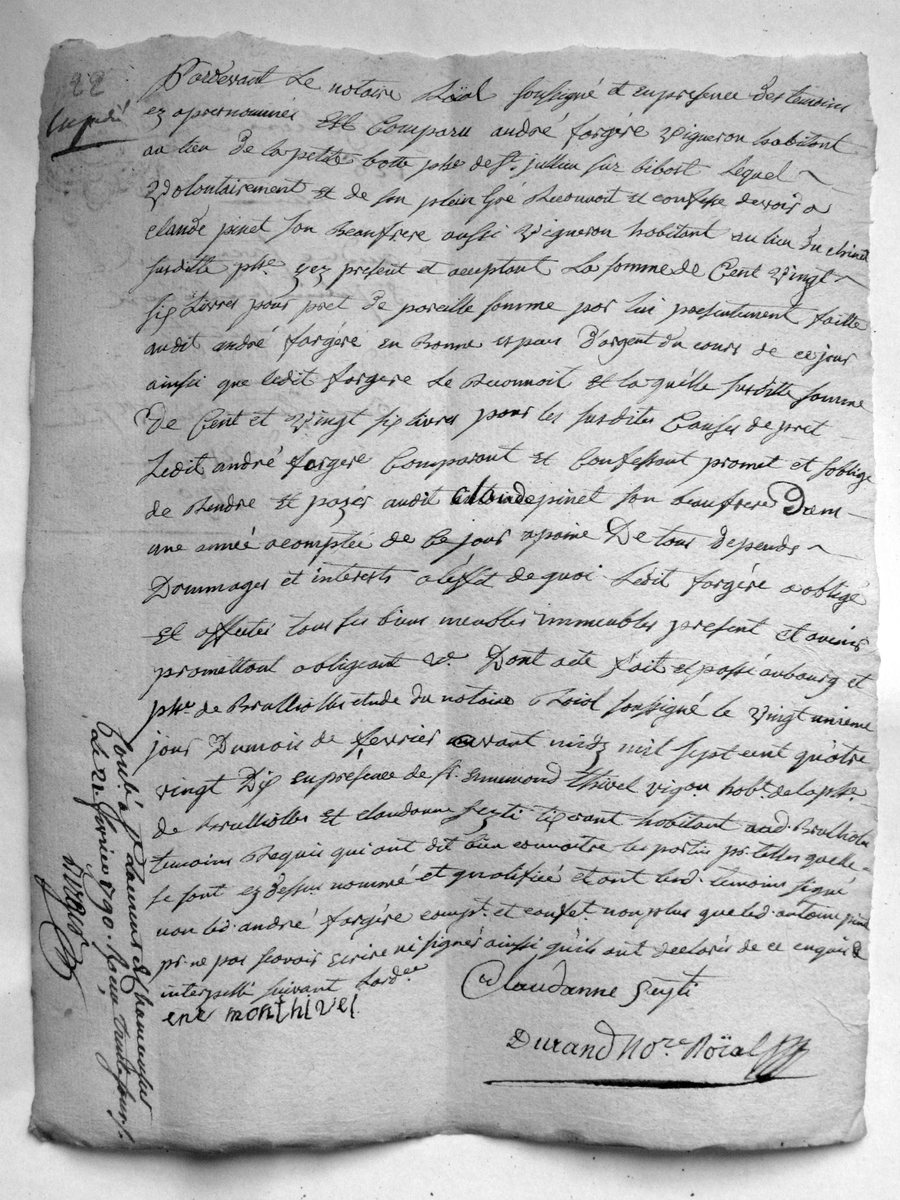 22
Expédié
Pardevant Le notaire Roïal soussigné et enpresence des temoins
ez aprernommés Est Comparu andré fargére vigneron habitant
au lieu de la petite botte phe de St. jullin sur bibost Lequel
Volontairement et de son plein Gré Reconnoit et confesse devoir a
claude pinet son Beaufrere aussi Vigneron habitant au lieu du
surditte phe. yez present et aceptant La somme de Cent Vingt
six Livres pour pret de pareille somme par lui presentement faitte
audit andré fargére en Bonne espece D'argent du cours de ce jour
ainsi que ledit fargére Le Reconnoit et la quélle susditte somme
De Cent et Vingt six livres pour les susdites Causes de pret
Ledit andré fargére Comparant et Confessant promet et soblige
de Rendre et payér audit claude pinet son beaufrere Dans
une année acomptée de ce jour apeine De tous depends
Dommages et interests aléffet de quoi Ledit fargére aobligé
Et affectés tous ses biens meubles immeubles present et avenir
promettant obligeant &c. Dont acte fait et passé aubourg et
phe. de Brulliolles etude du notaire Roïal soussigné le vingt unieme
jour Dumois de fevrier avant midy mil sept cent quatre
vingt Dix enpresence de sr. Ennemond thivel vigon habt. de la phe.
de Brulliolles et claudanne Seyti tixerant habitant aud Brulliolles
temoins Requis qui ont dit bien connoitre les parties pr. telles quelle
se sont ez dessus nommé et qualifiée et ont lesd. temoins signé
non led. andré fargére compt. et confest. non plus que led. antoine pinet
pr. ne pas scavoir écrire ni signér ainsi qu'ils ont declarés de ce enquis &
interpellé suivant Lordce
ene monthivel
Claudanne Seyti
Durand Nore. Roïal
Conlé a St Laurent de Chamousset
Le 21. fevrier 1790. Reçu trente sous